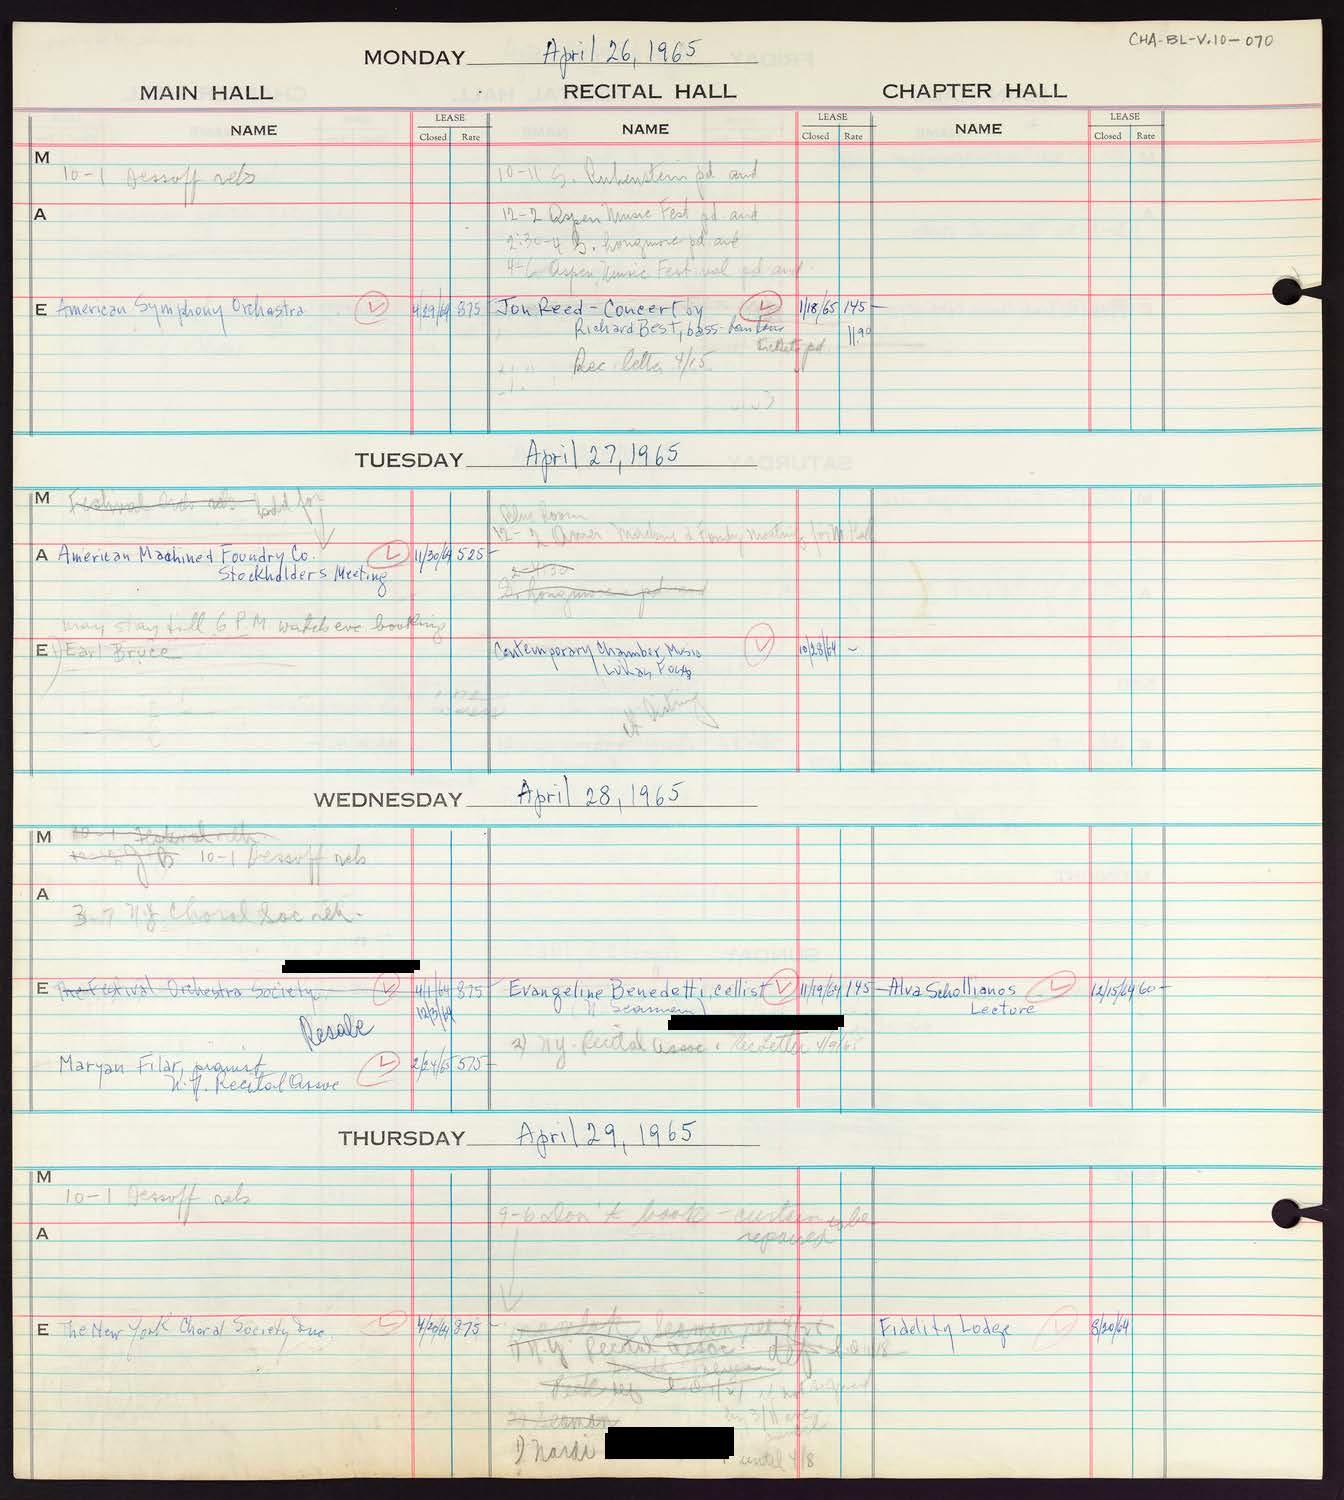 CHA-BL-V.10-070
MONDAY April 26, 1965
MAIN HALL RECITAL HALL CHAPTER HALL
NAME LEASE Closed Rate NAME LEASE Closed Rate NAME LEASE Closed Rate
M
10-1 Dessoff rehs
10-11 S. Rubenstein pd and
A
12-2 Aspen Music Fest pd and
2:30-4 B. Longmore pd
4-6 Aspen Music Festival pd and
E American Symphony Orchestra 4/29/64 875
Jon Reed - Concert by 1/18/65 145-
Richard Best, bass-baritone 11.90
tickets pd.
Rec letter 4/15
TUESDAY April 27, 1965
M
Festival Orch rehs hold for
A American Machine & Foundry Co. 11/30/64 525-
Stockholders Meeting
12-2 Amer. Machine & Foundry Meeting for M Hall
2-4:30
B. Longmore pd and
may stay till 6 P.M. watch eve booking
E 1) Earl Bruce
Contemporary Chamber Music 10/28/64 -
Lukas Foss
WEDNESDAY April 28, 1965
M
10-1 Festival rehs
10-1 Dessoff rehs
A
3-7 NY Choral Soc reh.
E The Festival Orchestra Society 4/1/64 875
12/3/64
Resale
Evangeline Benedetti, cellist 11/19/64 145-
(N. Seaman)
2) N.Y. Recital Assoc. Rec Letter 4/9/65
Alva Schollianos 12/15/64 60-
Lecture
Maryan Filar, pianist 2/24/65 575-
N.Y. Recital Assoc
THURSDAY April 29, 1965
M
10-1 Dessoff rehs
9-6 Don't book - curtain to be
repaired
A
E The New York Choral Society Inc. 4/20/64 875-
NY Recital Assoc.
2) Seaman
1) Nardi
until 4/8
Fidelity Lodge 8/20/64